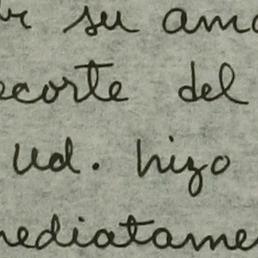 su
ecorte del
Ud. hizo
mediatame